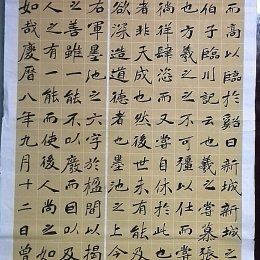 而高以臨於谿曰新城新城
伯子臨川記云也羲之嘗慕張
也方羲之之不可彊以仕而嘗
徜徉肆恣而又嘗自休於此
者非天成也然後世未有能及
欲深造道德者也墨池之上今
右軍墨池之六字於楹間以揭
人之善雖一能不以廢而因以及
人之有一能而使後人尚之如
如哉慶曆八年九月十二日曾